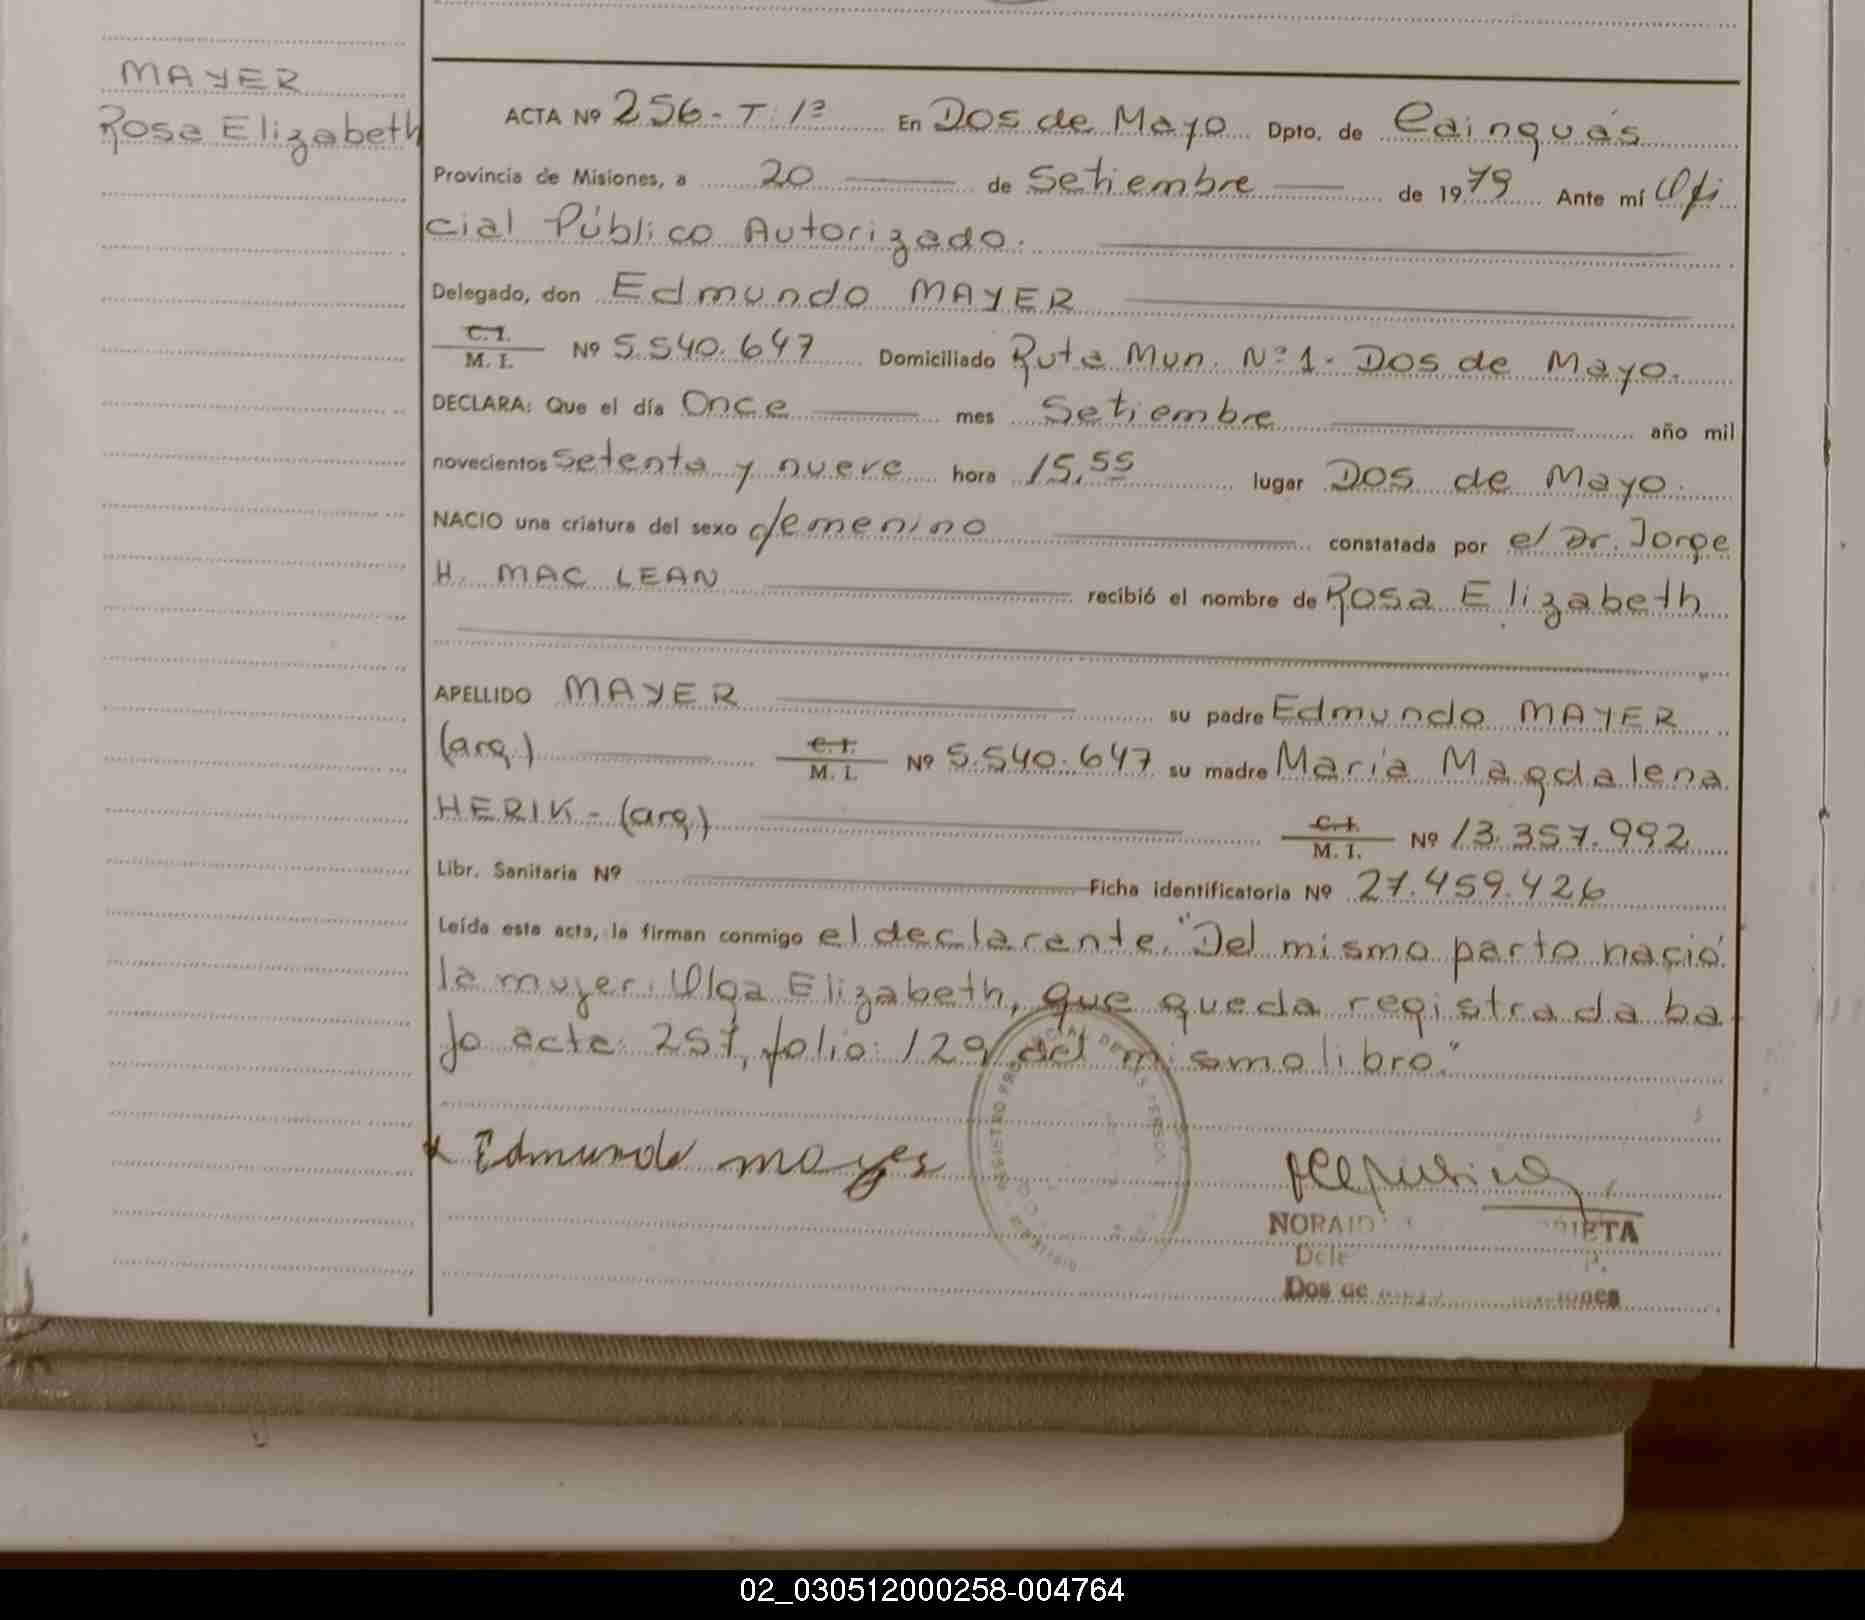 MAYER
Rosa Elizabeth
ACTA Nº 256 - T: 1ª En Dos de Mayo Dpto. de Cainguás
Provincia de Misiones, a 20 de Setiembre de 1979 Ante mí Ofi
cial Público Autorizado.
Delegado, don Edmundo MAYER
C.I.
M. I. Nº 5.540.647 Domiciliado Ruta Mun. Nº 1 - Dos de Mayo.
DECLARA: Que el día Once mes Setiembre año mil
novecientos setenta y nueve hora 15,55 lugar Dos de Mayo.
NACIO una criatura del sexo femenino constatada por el Dr. Jorge
H. MAC LEAN recibió el nombre de Rosa Elizabeth
APELLIDO MAYER su padre Edmundo MAYER
(arg.) C.I. M. I. Nº 5.540.647 su madre María Magdalena
HERIK - (arg.) C.I. M. I. Nº 13.357.992
Libr. Sanitaria Nº Ficha identificatoria Nº 27.459.426
Leída esta acta, la firman conmigo el declarante. "Del mismo parto nació
la mujer: Olga Elizabeth, que queda registrada ba-
jo acta: 257, folio: 129 del mismo libro."
x Edmundo mayer
REGISTRO DE LAS PERSONAS
NORAID
Dos de
02_030512000258-004764